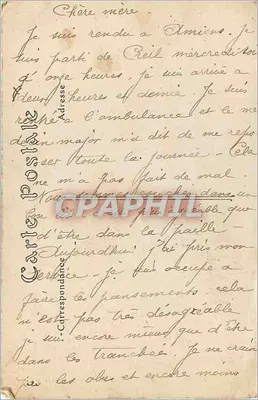 Chère mère.
Je suis rendu à Amiens. Je
suis parti de Creil mercredi soir
à onze heures. Je suis arrivé à
deux heures et demie. Je suis
rentré à l'ambulance et le mé
decin major m'a dit de me repo
ser toute la journée - Cela
ne m'a pas fait de mal.
dans un
que
d'être dans la paille -
Aujourdhui j'ai pris mon
service - je suis occupé à
faire les pansements. cela
n'est pas très désagréable
je suis encore mieux que d'être
dans les tranchées. Je ne crains
pas les obus et encore moins
Carte postale
Correspondance
Adresse
CPAPHIL